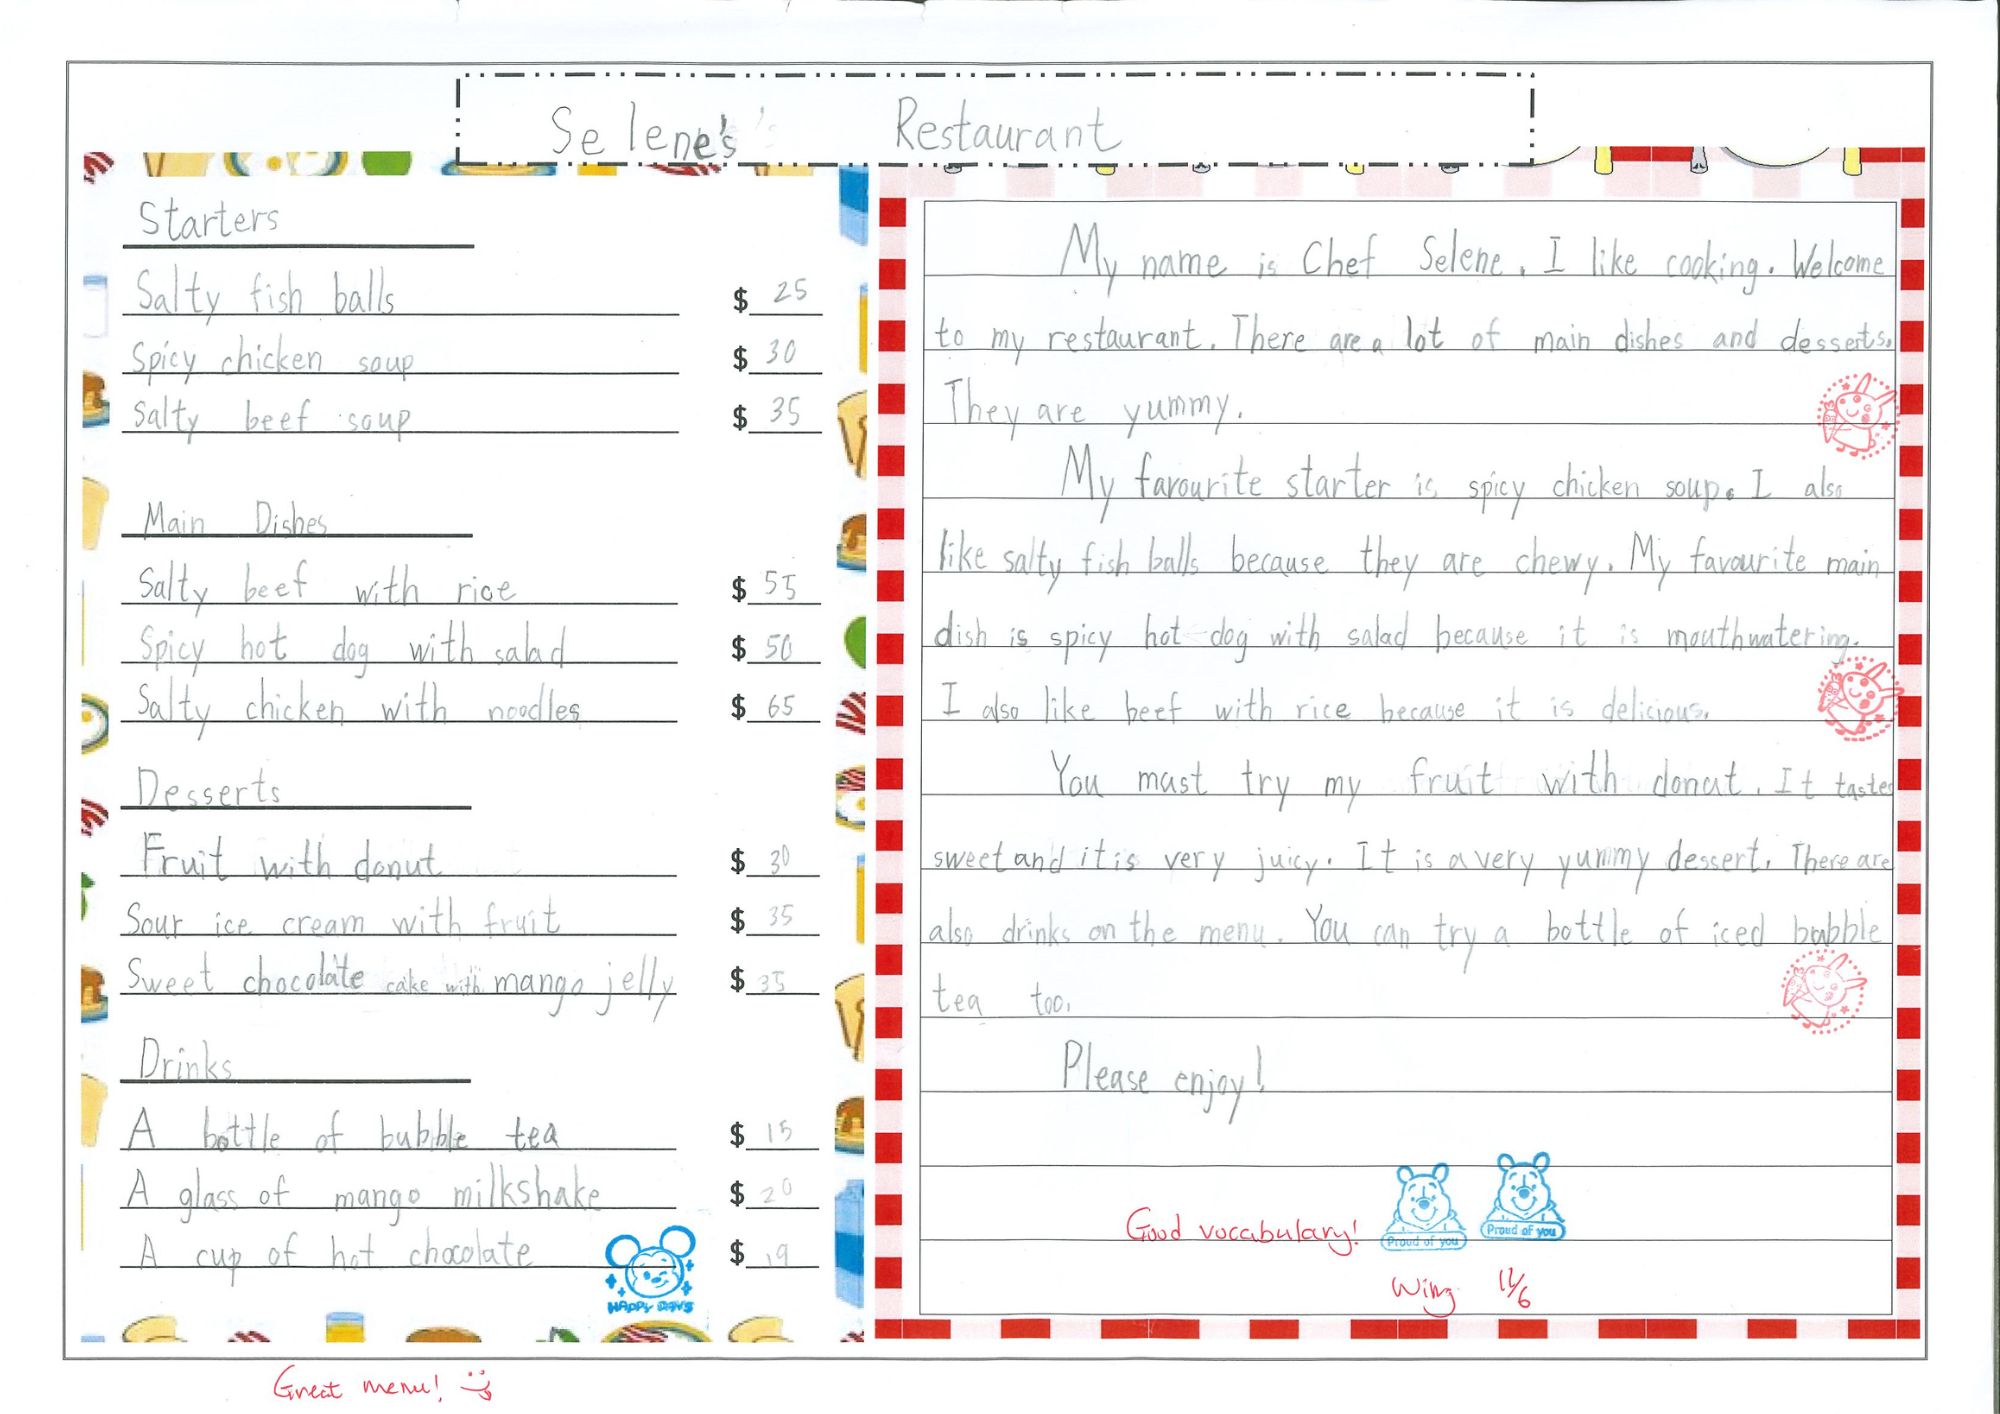 Selene's Restaurant
Starters
Salty fish balls $ 25
Spicy chicken soup $ 30
Salty beef soup $ 35
Main Dishes
Salty beef with rice $ 55
Spicy hot dog with salad $ 50
Salty chicken with noodles $ 65
Desserts
Fruit with donut $ 30
Sour ice cream with fruit $ 35
Sweet chocolate cake with mango jelly $ 35
Drinks
A bottle of bubble tea $ 15
A glass of mango milkshake $ 20
A cup of hot chocolate $ 19
HAPPY DAYS
Great menu!
My name is Chef Selene. I like cooking. Welcome
to my restaurant. There are a lot of main dishes and desserts.
They are yummy.
My favourite starter is spicy chicken soup. I also
like salty fish balls because they are chewy. My favourite main
dish is spicy hot dog with salad because it is mouthwatering.
I also like beef with rice because it is delicious.
You must try my fruit with donut. It tastes
sweet and it is very juicy. It is a very yummy dessert. There are
also drinks on the menu. You can try a bottle of iced bubble
tea too.
Please enjoy!
Good vocabulary!
Proud of you
Proud of you
Wing 12/6